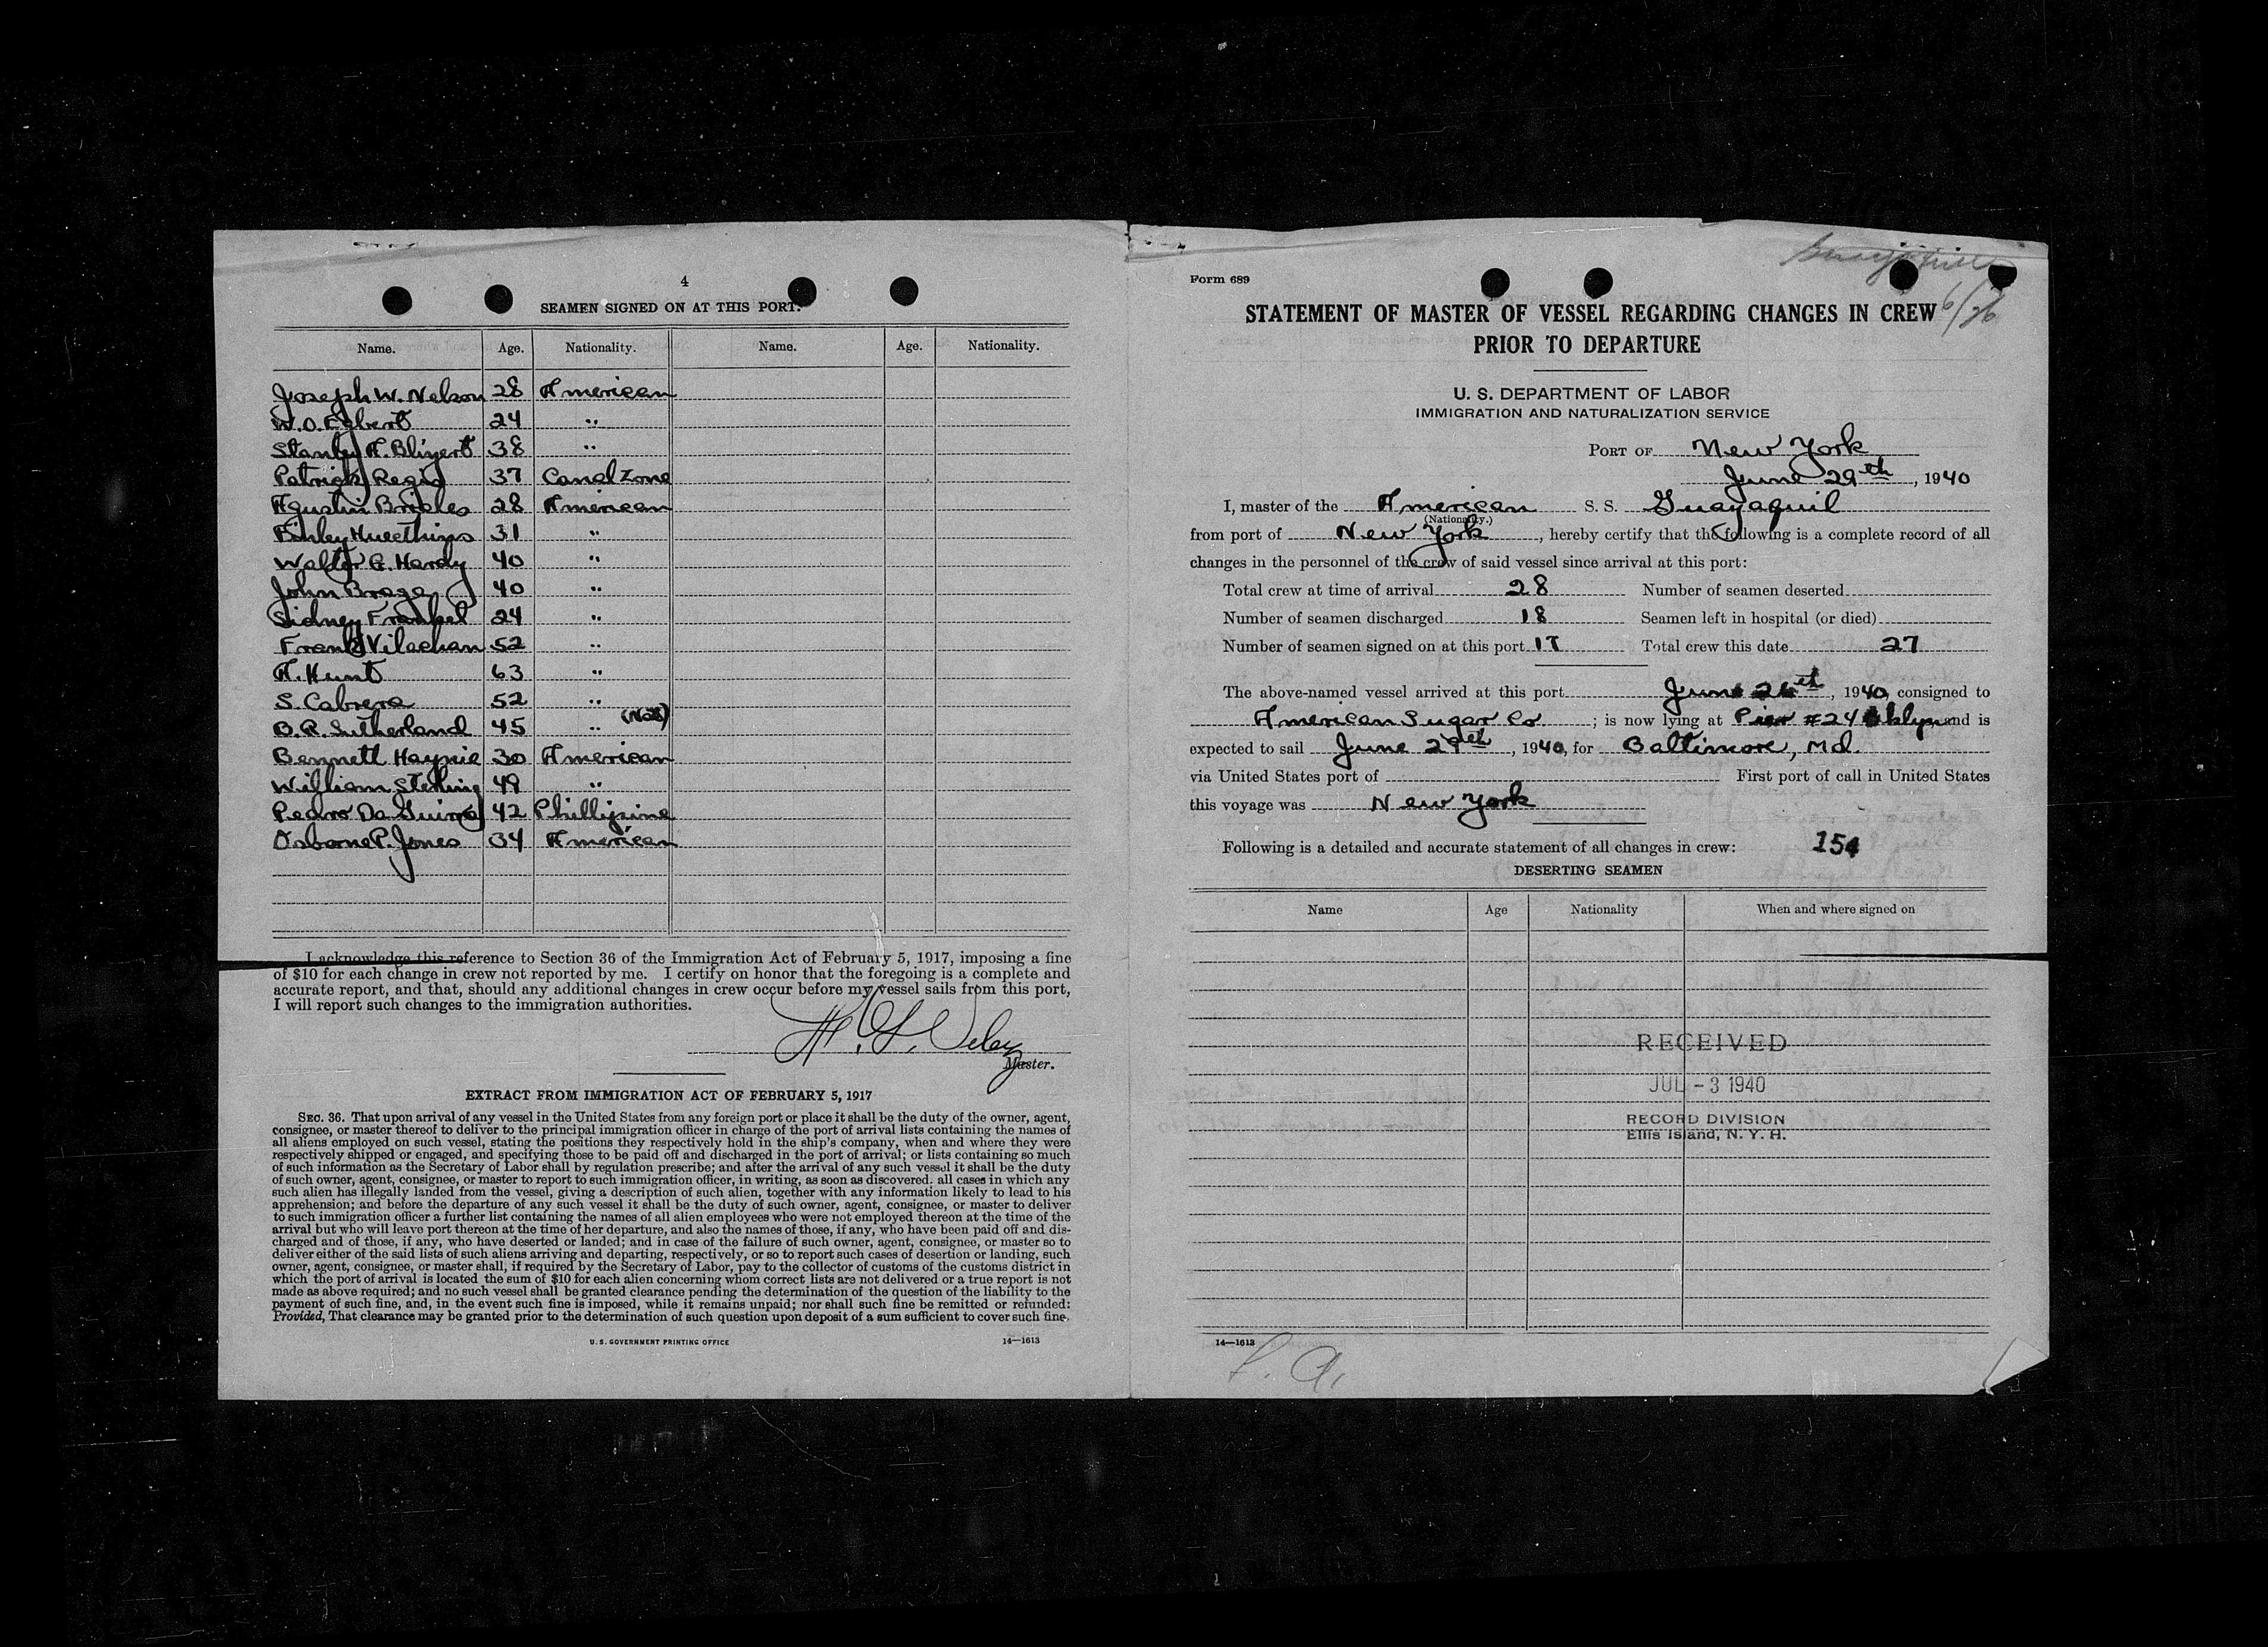 4
SEAMEN SIGNED ON AT THIS PORT.
Name. Age. Nationality. Name. Age. Nationality.
Joseph W. Nelson 28 American
W. O. Egbert 24 "
Stanley A. Blizert 38 "
Patrick Regis 37 Canal Zone
Agustin Brioles 28 American
31 "
Walter G. Hardy 40 "
John Braga 40 "
Sidney Frankel 24 "
Frank Vilachan 52 "
A. Hunt 63 "
S. Cabrera 52 "
B. R. Sutherland 45 " (Nat)
Bennett Haynie 30 American
William Sterling 49 "
Pedro Da Guirre 42 Phillipine
Osborne P. Jones 34 American
I acknowledge this reference to Section 36 of the Immigration Act of February 5, 1917, imposing a fine
of $10 for each change in crew not reported by me. I certify on honor that the foregoing is a complete and
accurate report, and that, should any additional changes in crew occur before my vessel sails from this port,
I will report such changes to the immigration authorities.
Master.
EXTRACT FROM IMMIGRATION ACT OF FEBRUARY 5, 1917
SEC. 36. That upon arrival of any vessel in the United States from any foreign port or place it shall be the duty of the owner, agent,
consignee, or master thereof to deliver to the principal immigration officer in charge of the port of arrival lists containing the names of
all aliens employed on such vessel, stating the positions they respectively hold in the ship's company, when and where they were
respectively shipped or engaged, and specifying those to be paid off and discharged in the port of arrival; or lists containing so much
of such information as the Secretary of Labor shall by regulation prescribe; and after the arrival of any such vessel it shall be the duty
of such owner, agent, consignee, or master to report to such immigration officer, in writing, as soon as discovered. all cases in which any
such alien has illegally landed from the vessel, giving a description of such alien, together with any information likely to lead to his
apprehension; and before the departure of any such vessel it shall be the duty of such owner, agent, consignee, or master to deliver
to such immigration officer a further list containing the names of all alien employees who were not employed thereon at the time of the
arrival but who will leave port thereon at the time of her departure, and also the names of those, if any, who have been paid off and dis-
charged and of those, if any, who have deserted or landed; and in case of the failure of such owner, agent, consignee, or master so to
deliver either of the said lists of such aliens arriving and departing, respectively, or so to report such cases of desertion or landing, such
owner, agent, consignee, or master shall, if required by the Secretary of Labor, pay to the collector of customs of the customs district in
which the port of arrival is located the sum of $10 for each alien concerning whom correct lists are not delivered or a true report is not
made as above required; and no such vessel shall be granted clearance pending the determination of the question of the liability to the
payment of such fine, and, in the event such fine is imposed, while it remains unpaid; nor shall such fine be remitted or refunded:
Provided, That clearance may be granted prior to the determination of such question upon deposit of a sum sufficient to cover such fine.
U. S. GOVERNMENT PRINTING OFFICE 14—1613
Guayaquil
6/26
Form 689
STATEMENT OF MASTER OF VESSEL REGARDING CHANGES IN CREW
PRIOR TO DEPARTURE
U. S. DEPARTMENT OF LABOR
IMMIGRATION AND NATURALIZATION SERVICE
PORT OF New York
June 29th, 1940
I, master of the American S. S. Guayaquil
(Nationality.)
from port of New York, hereby certify that the following is a complete record of all
changes in the personnel of the crew of said vessel since arrival at this port:
Total crew at time of arrival 28 Number of seamen deserted
Number of seamen discharged 18 Seamen left in hospital (or died)
Number of seamen signed on at this port 17 Total crew this date 27
The above-named vessel arrived at this port June 26th, 1940, consigned to
American Sugar Co.; is now lying at Pier #24 Bklyn and is
expected to sail June 29th, 1940, for Baltimore, Md.
via United States port of First port of call in United States
this voyage was New York
Following is a detailed and accurate statement of all changes in crew: 154
DESERTING SEAMEN
Name Age Nationality When and where signed on
RECEIVED
JUL - 3 1940
RECORD DIVISION
Ellis Island, N. Y. H.
14—1613